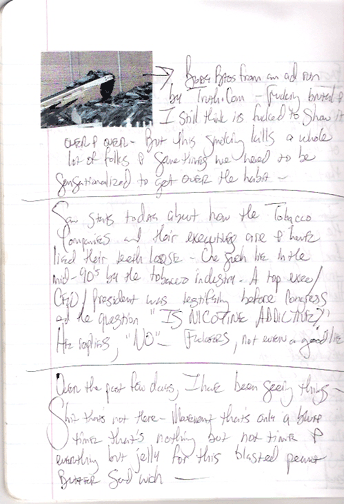 from an ad run
by Truth.Com - Fucking brutal &
I still think is fucked to show it
over & over - But this smoking kills a whole
lot of folks & sometimes we need to be
sensationalized to get over the habit -
Saw stats today about how the Tobacco
Companies and their executives are &
lied their teeth loose - One such lie in the
mid-90's by the tobacco industry. A top exec/
CEO/president was testifying before Congress
and the question "IS NICOTINE ADDICTIVE?"
He replies, "NO" - Fuckers, not even a good lie
Over the past few days, I have been seeing things -
Shit thats not there - Movement thats only a
time that's nothing but not time &
everything but jelly for this blasted peanut
BUTTER Sandwich -